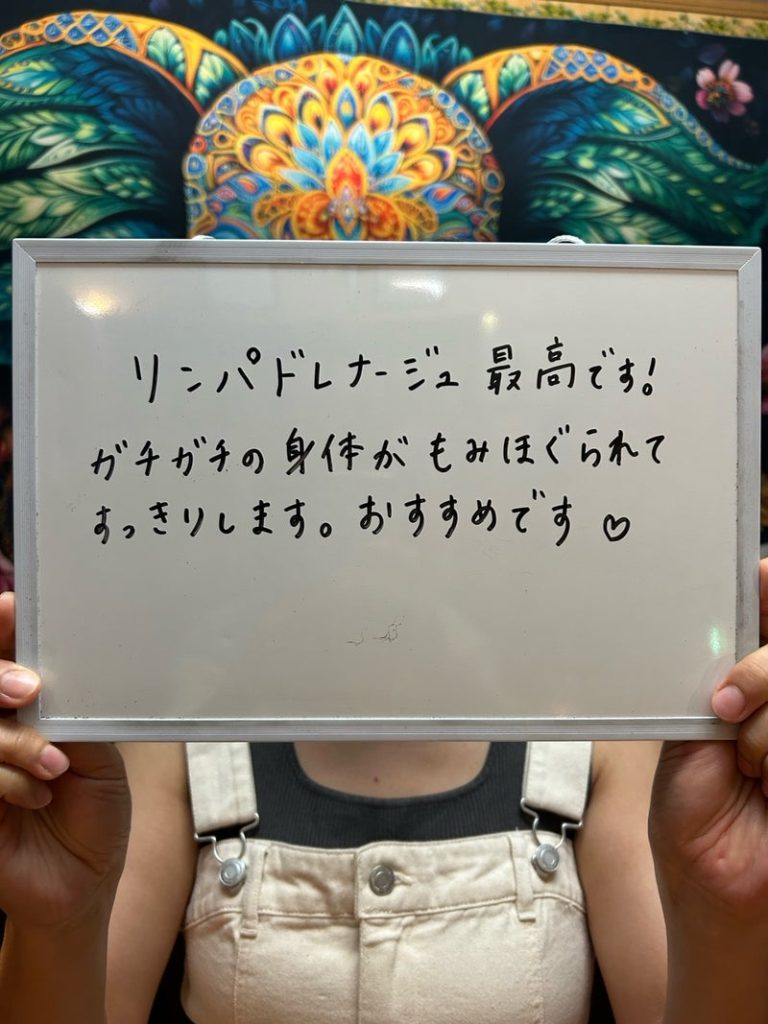 リンパドレナージュ 最高です!
ガチガチの身体がもみほぐられて
すっきりします。おすすめです♡